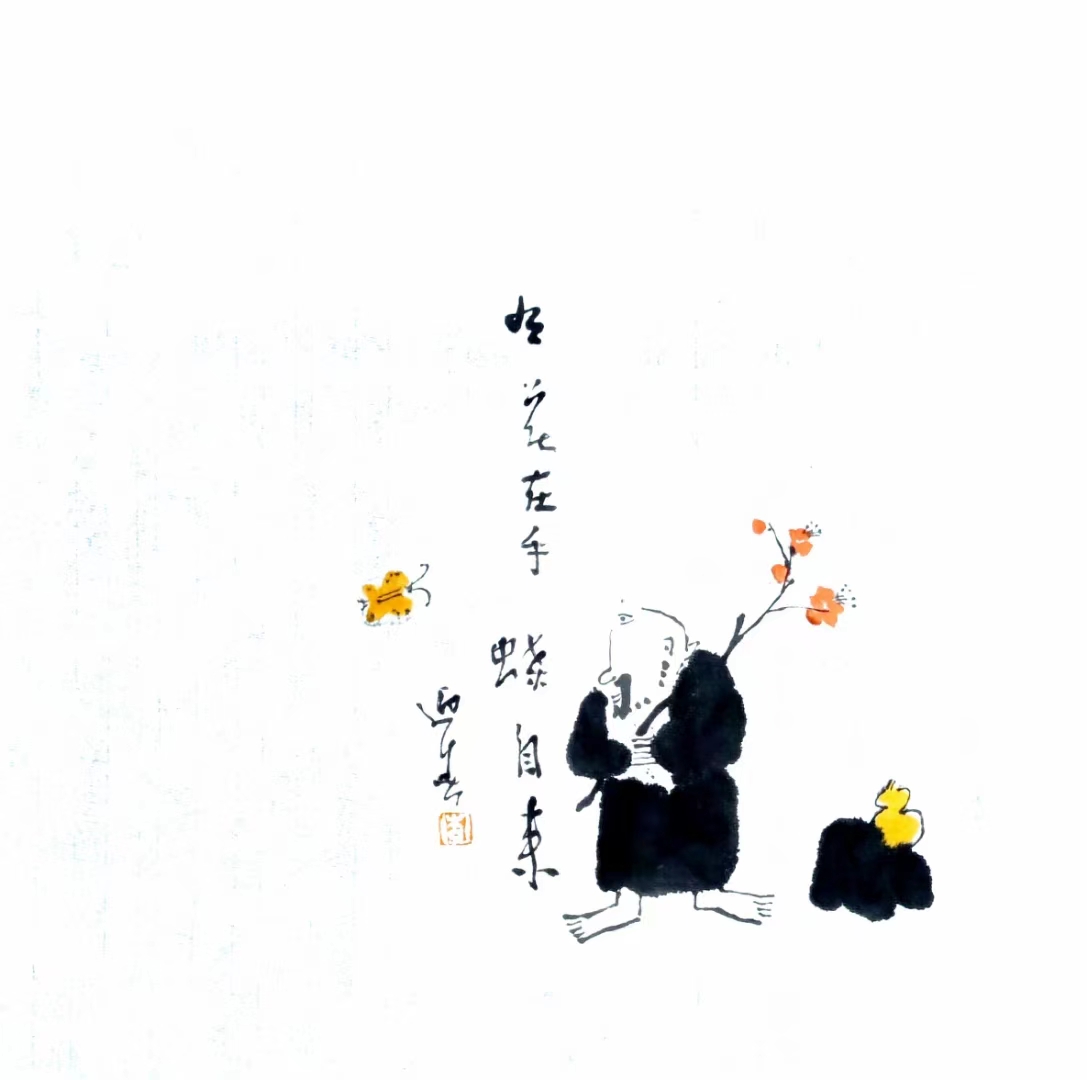 如花在手 蝶自来
迎春